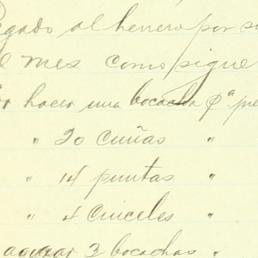 Pagado al herrero por su
el mes como sigue
Por hacer una bocacha pª
" 20 cuñas "
" 14 puntas "
" 4 cinceles "
aguzar 3 bocachas "